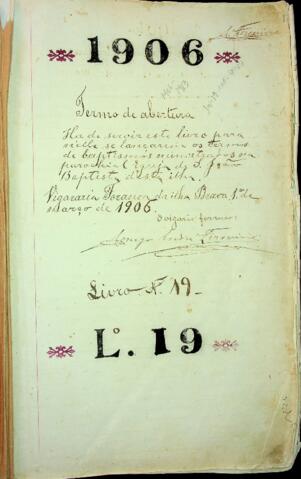 1906
Termo de abertura
Ha de servir este livro para
nelle se lançarem os termos
de baptismos ministrados na
parochial Egreja de S. João
Baptista desta ilha.
Vigararia Foranea da ilha Brava, 1º de
Março de 1906.
O vigario foraneo
Livro Nº 19
Lº. 19